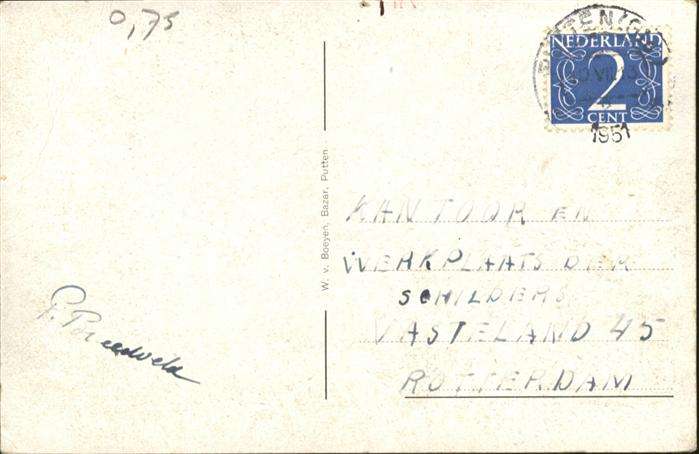 0,75
PUTTEN (GLD)
NEDERLAND
2
CENT
1951
W. v. Boeyen, Bazar, Putten
KANTOOR EN
WERKPLAATS DER
SCHILDERS
VASTELAND 45
ROTTERDAM